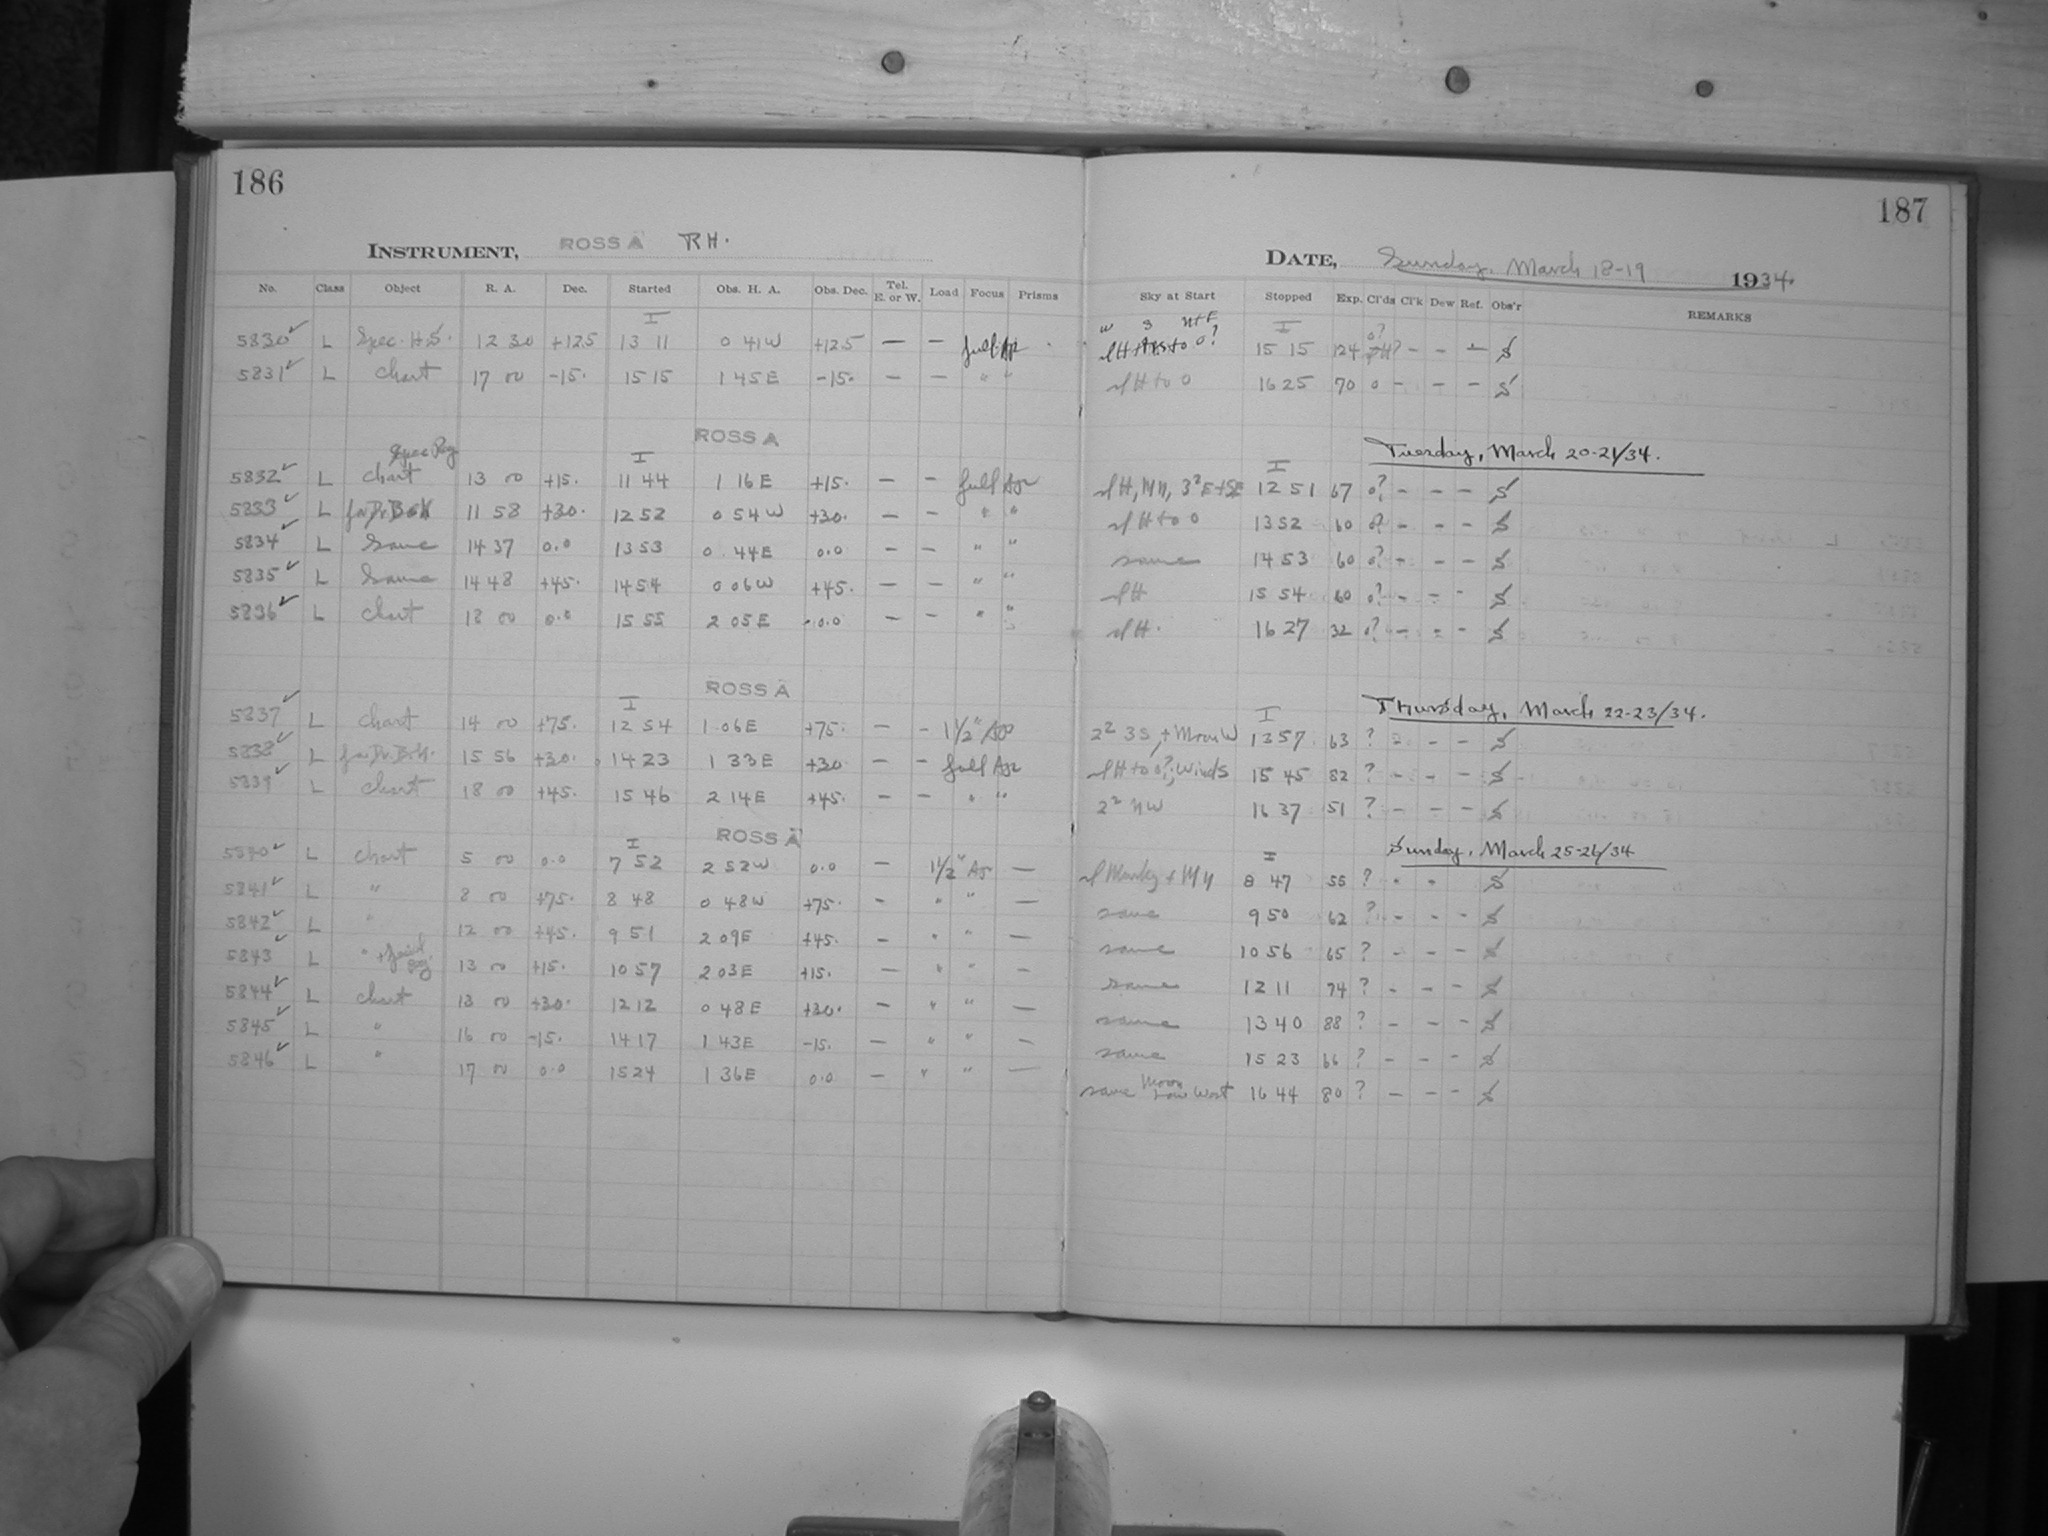 186
187
INSTRUMENT, ROSS A RH.
DATE, Sunday, March 18-19 1934.
No. Class Object R. A. Dec. Started Obs. H. A. Obs. Dec. Tel. E. or W. Load Focus Prisms Sky at Start Stopped Exp. Cl'ds Cl'k Dew Ref. Obs'r REMARKS
I W S N+E I
5830 ✓ L Spec. H.S. 12 30 +12.5 13 11 0 41 W +12.5 — — full Apr to 0? 15 15 124 0? — — — S
5831 ✓ L Chart 17 00 -15. 15 15 1 45 E -15. — — " " H to 0 16 25 70 0 — — — S
ROSS A Tuesday, March 20-21/34.
Spec Reg I I
5832 ✓ L Chart 13 00 +15. 11 44 1 16 E +15. — — full Apr H, 12 51 67 0? — — — S
5833 ✓ L for Dr. B.K 11 58 +30. 12 52 0 54 W +30. — — " " H to 0 13 52 60 0? — — — S
5834 ✓ L Same 14 37 0.0 13 53 0 44 E 0.0 — — " " same 14 53 60 0? — — — S
5835 ✓ L Same 14 48 +45. 14 54 0 06 W +45. — — " " H 15 54 60 0? — — — S
5836 ✓ L Chart 18 00 0.0 15 55 2 05 E 0.0 — — " " H. 16 27 32 0? — — — S
ROSS A Thursday, March 22-23/34.
I I
5837 ✓ L Chart 14 00 +75. 12 54 1 06 E +75. — — 1½" Apr 2² 3S, + Moon W 1357 63 ? — — — S
5838 ✓ L for Dr. B.K. 15 56 +30. 14 23 1 33 E +30 — — full Apr H to 0?; Winds 15 45 82 ? — — — S
5839 ✓ L Chart 18 00 +45. 15 46 2 14 E +45. — — " " 2² NW 16 37 51 ? — — — S
ROSS A Sunday, March 25-26/34
I I
5840 ✓ L Chart 5 00 0.0 7 52 2 52 W 0.0 — 1½" Ap — Murky + 8 47 55 ? - - S
5841 ✓ L " 8 00 +75. 8 48 0 48 W +75. — " " — same 9 50 62 ? — — — S
5842 ✓ L " 12 00 +45. 9 51 2 09 E +45. — " " — same 10 56 65 ? — — — S
5843 ✓ L " + 13 00 +15. 10 57 2 03 E +15. — " " — same 12 11 74 ? — — — S
5844 ✓ L Chart 13 00 +30. 12 12 0 48 E +30. — " " — same 13 40 88 ? — — — S
5845 ✓ L " 16 00 -15. 14 17 1 43 E -15. — " " — same 15 23 66 ? — — — S
5846 ✓ L " 17 00 0.0 15 24 1 36 E 0.0 — " " — same Moon Low West 16 44 80 ? — — — S